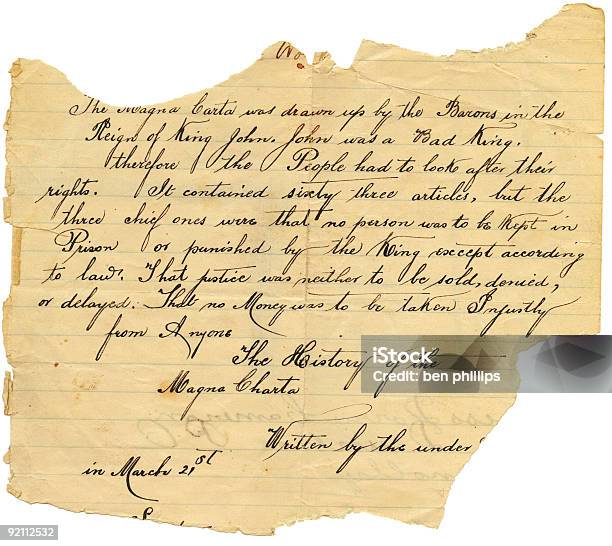 No.
The Magna Carta was drawn up by the Barons in the
Reign of King John. John was a Bad King.
therefore the People had to look after their
rights. It contained sixty three articles, but the
three chief ones were that no person was to be Kept in
Prison or punished by the King except according
to law. That justice was neither to be sold, denied,
or delayed. That no Money was to be taken Injustly
from Anyone
The History of the
Magna Charta
Written by the under
in March 21st
iStock
Credit: ben phillips
92112532